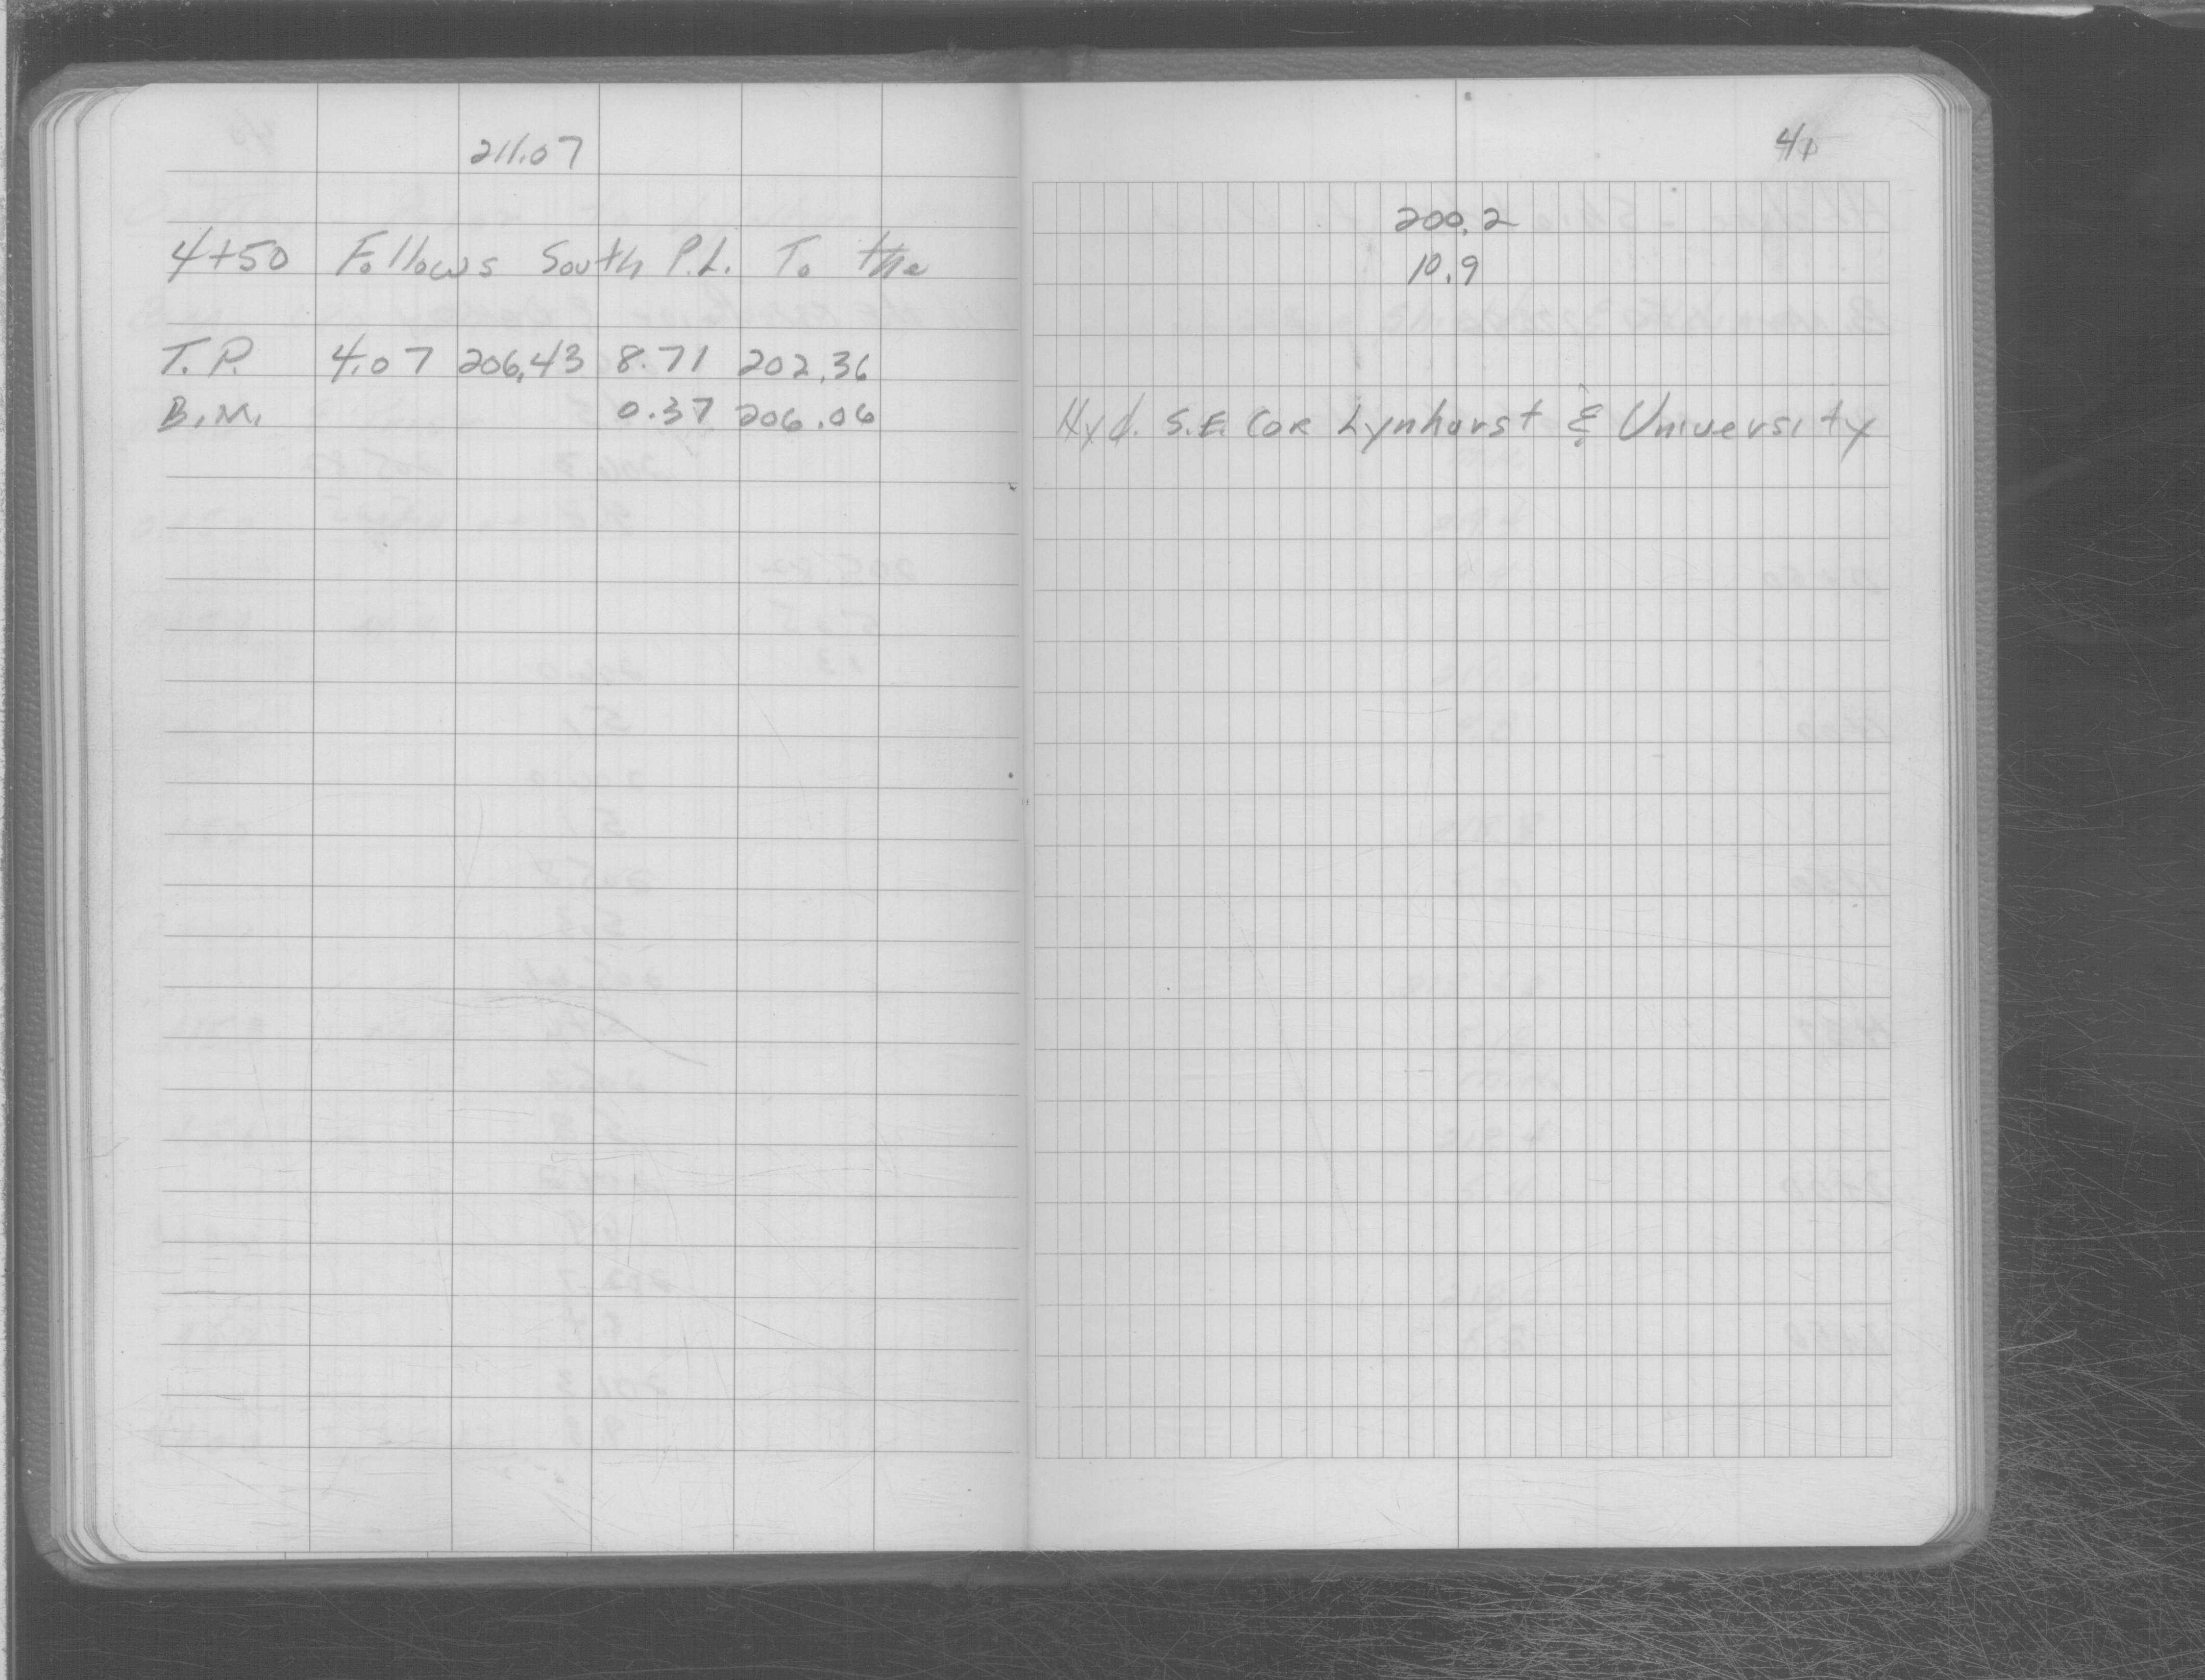 211.07
41
200.2
4+50 Follows South P.L. To the
10.9
T.P. 4.07 206.43 8.71 202.36
B.M. 0.37 206.06 Hyd. S.E. Cor Lynhurst & University